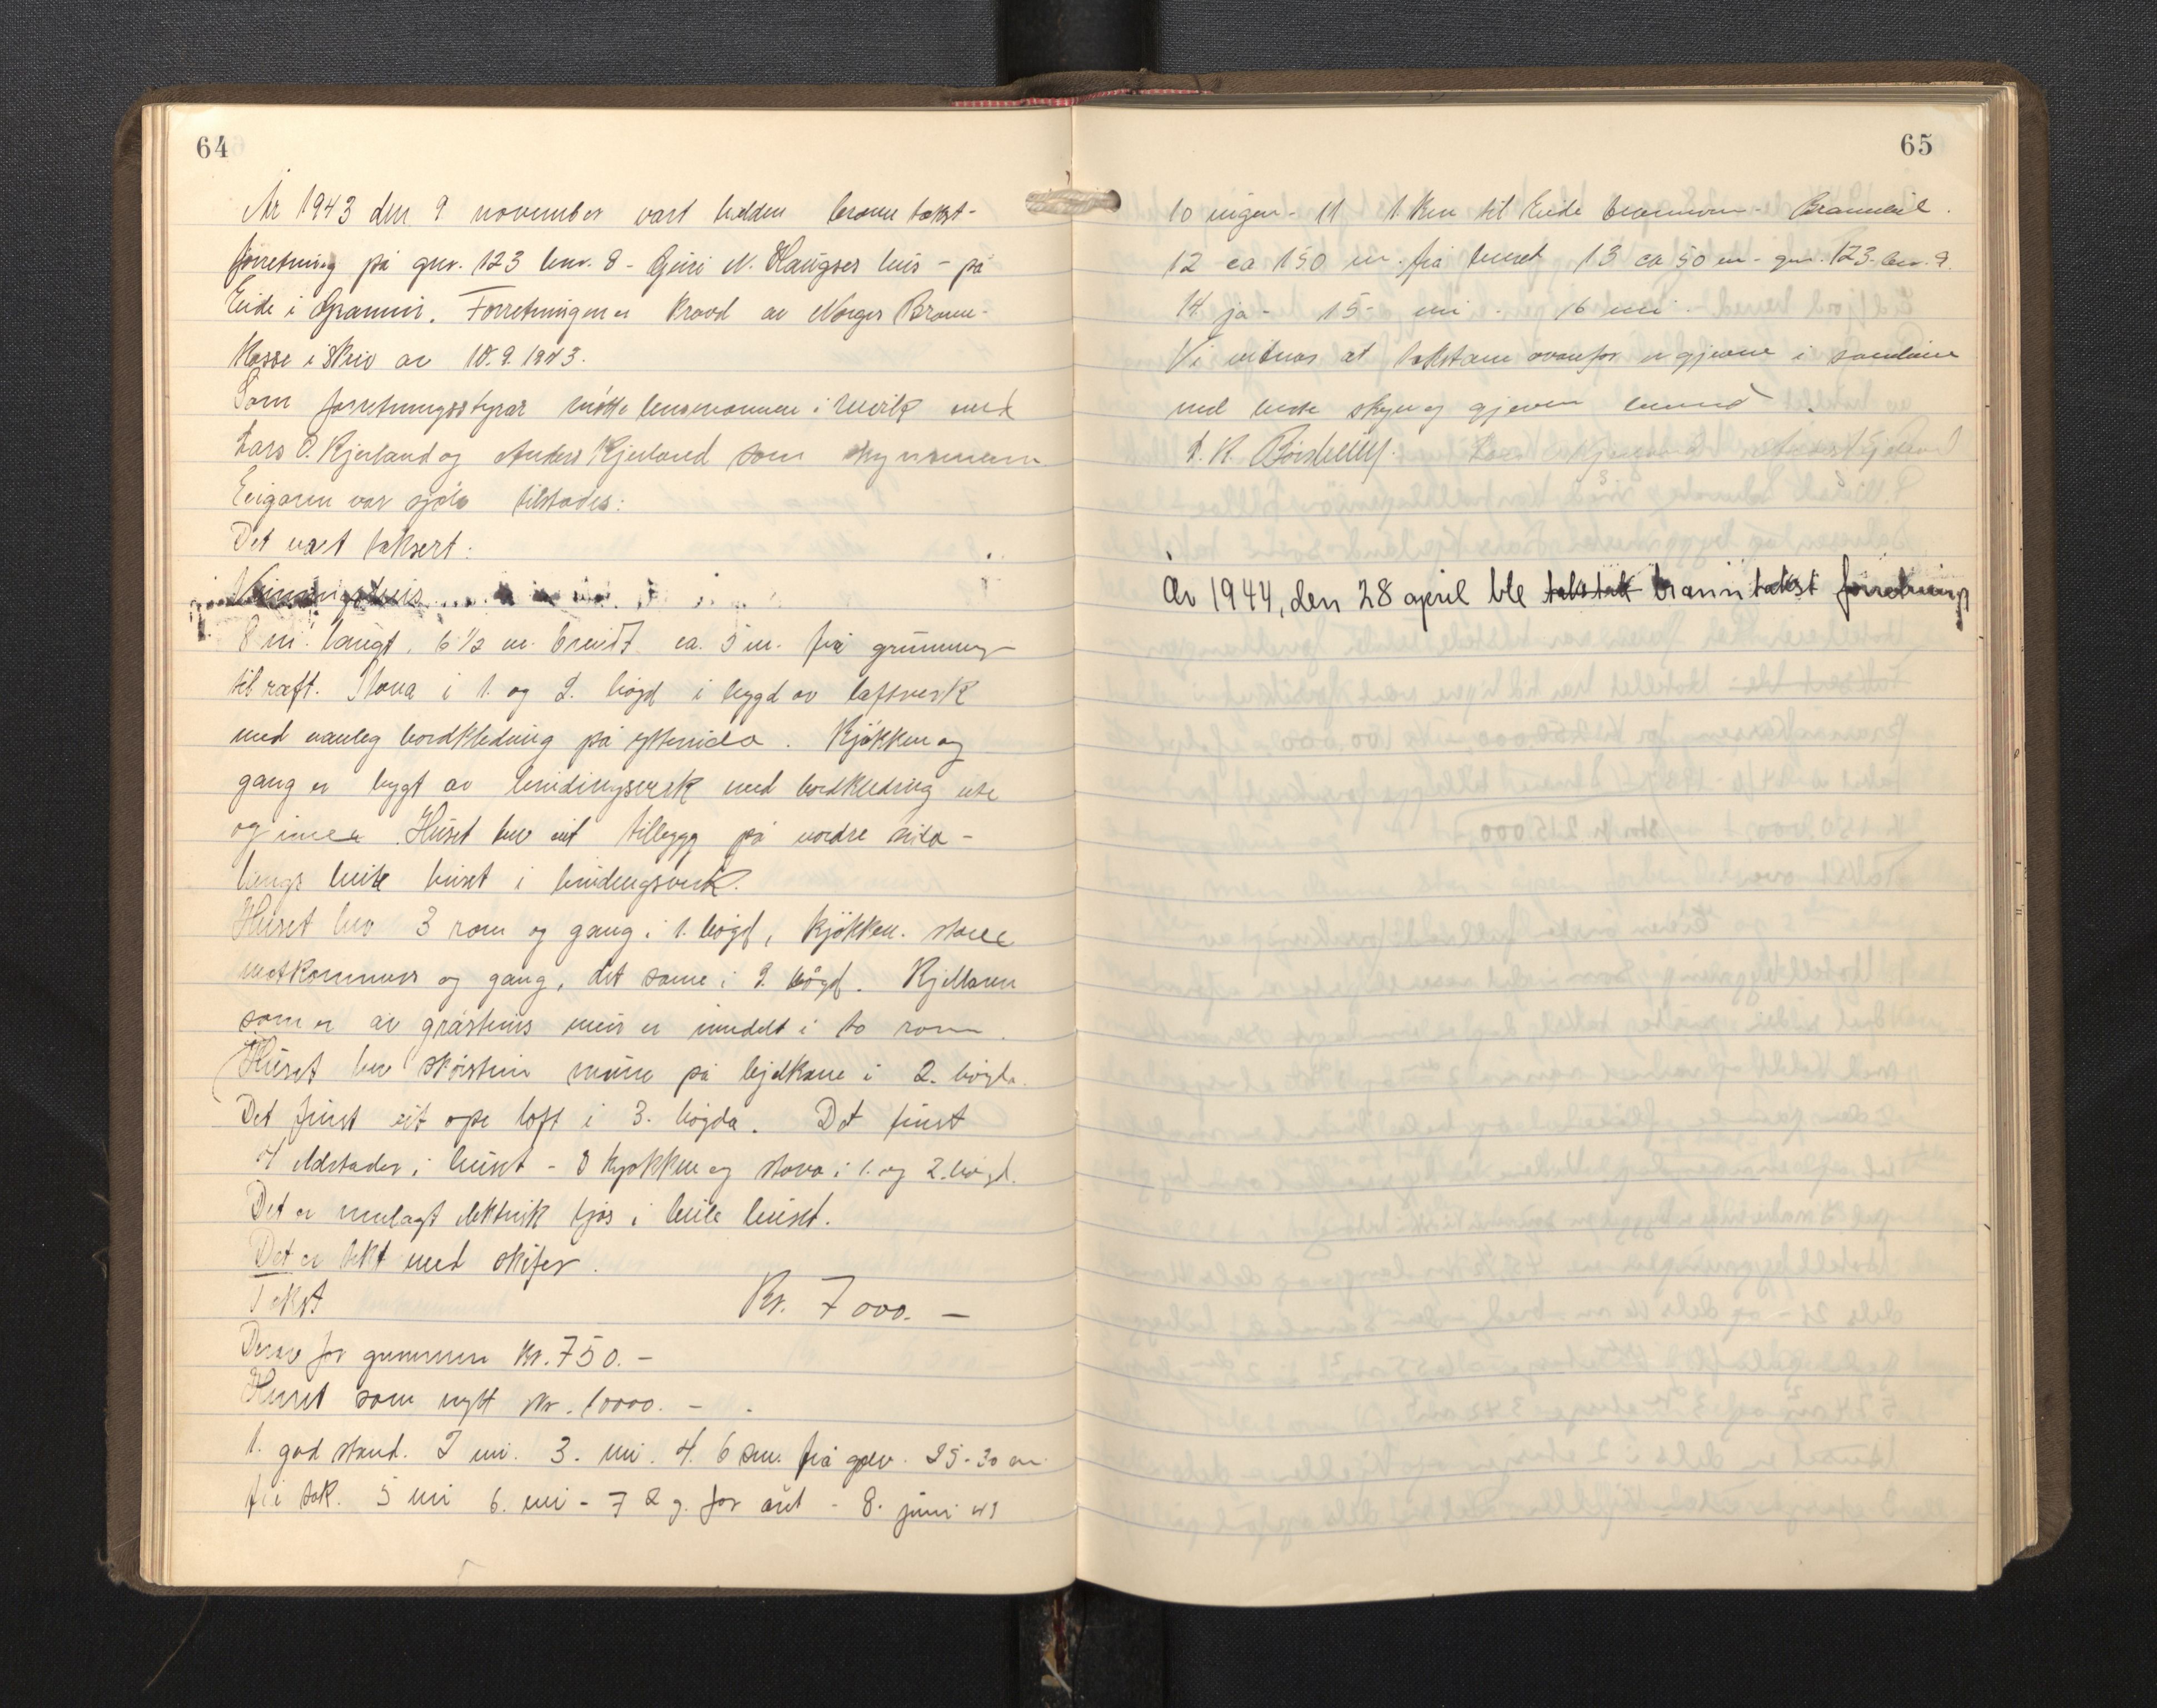 64
År 1943 den 9 november vart halden branntakst-
forretning på gnr. 123 bnr. 8 - Guri N. Haugses hus - på
Eide i Granvin. Forretningen er kravd av Norges Brann-
kasse i skriv av 18.9.1943.
Som forretningsstyrar møtte lensmannen i Ulvik med
Lars O. Kjerland og Anders Kjerland som skynsmenn
Eigaren var sjølv tilstades:
Det vart taksert:
Våningshus
8 m. langt, 6 1/2 m. breidt ca. 5 m. frå grunnmur
til raft. Stova i 1. og 2. høgd i bygd av laftverk
med vanleg bordkledning på yttersida. Kjøkken og
gang er bygt av bindingsverk med bordkledning ute
og inne. Huset hev eit tilbygg på nordre sida -
langs heile huset i bindingsverk.
Huset hev 3 rom og gang i 1. høgd, kjøkken. stove
matkammers og gang, det same i 2. høgd. Kjellaren
som er av gråsteins mur er inndelt i to rom.
Huset hev skorstein murin på bjelkane i 2. høgd.
Det finst eit ope loft i 3. høgda. Det finst
4 eldstader i huset - 2 kjøkken og stova i 1. og 2. høgd.
Det er innlagt elektrisk ljos i heile huset.
Det er tekt med skifer.
Takst Kr. 7000. -
Derav for grunnmur kr. 750. -
Huset som nytt kr. 10000. -
1. god stand. 2 nei. 3. nei. 4. 6 cm. frå golv. 25-30 cm
frå tak. 5 nei 6. nei - 7 2 g. for året - 8. juni 43
65
10 ingen - 11 1 km til Eide brannvern - Brannbil.
12 ca 150 m. frå huset 13 ca 50 m - gnr. 123. bnr. 9.
14 ja - 15 - nei - 16 nei.
Vi vitnar at takstane ovanfor er gjevne i samhøve
med beste skyn og gjeven lovnad.
L. K. Børsheim. Lars Kjerland Anders Kjerland
År 1944, den 28 april ble branntakst forretning